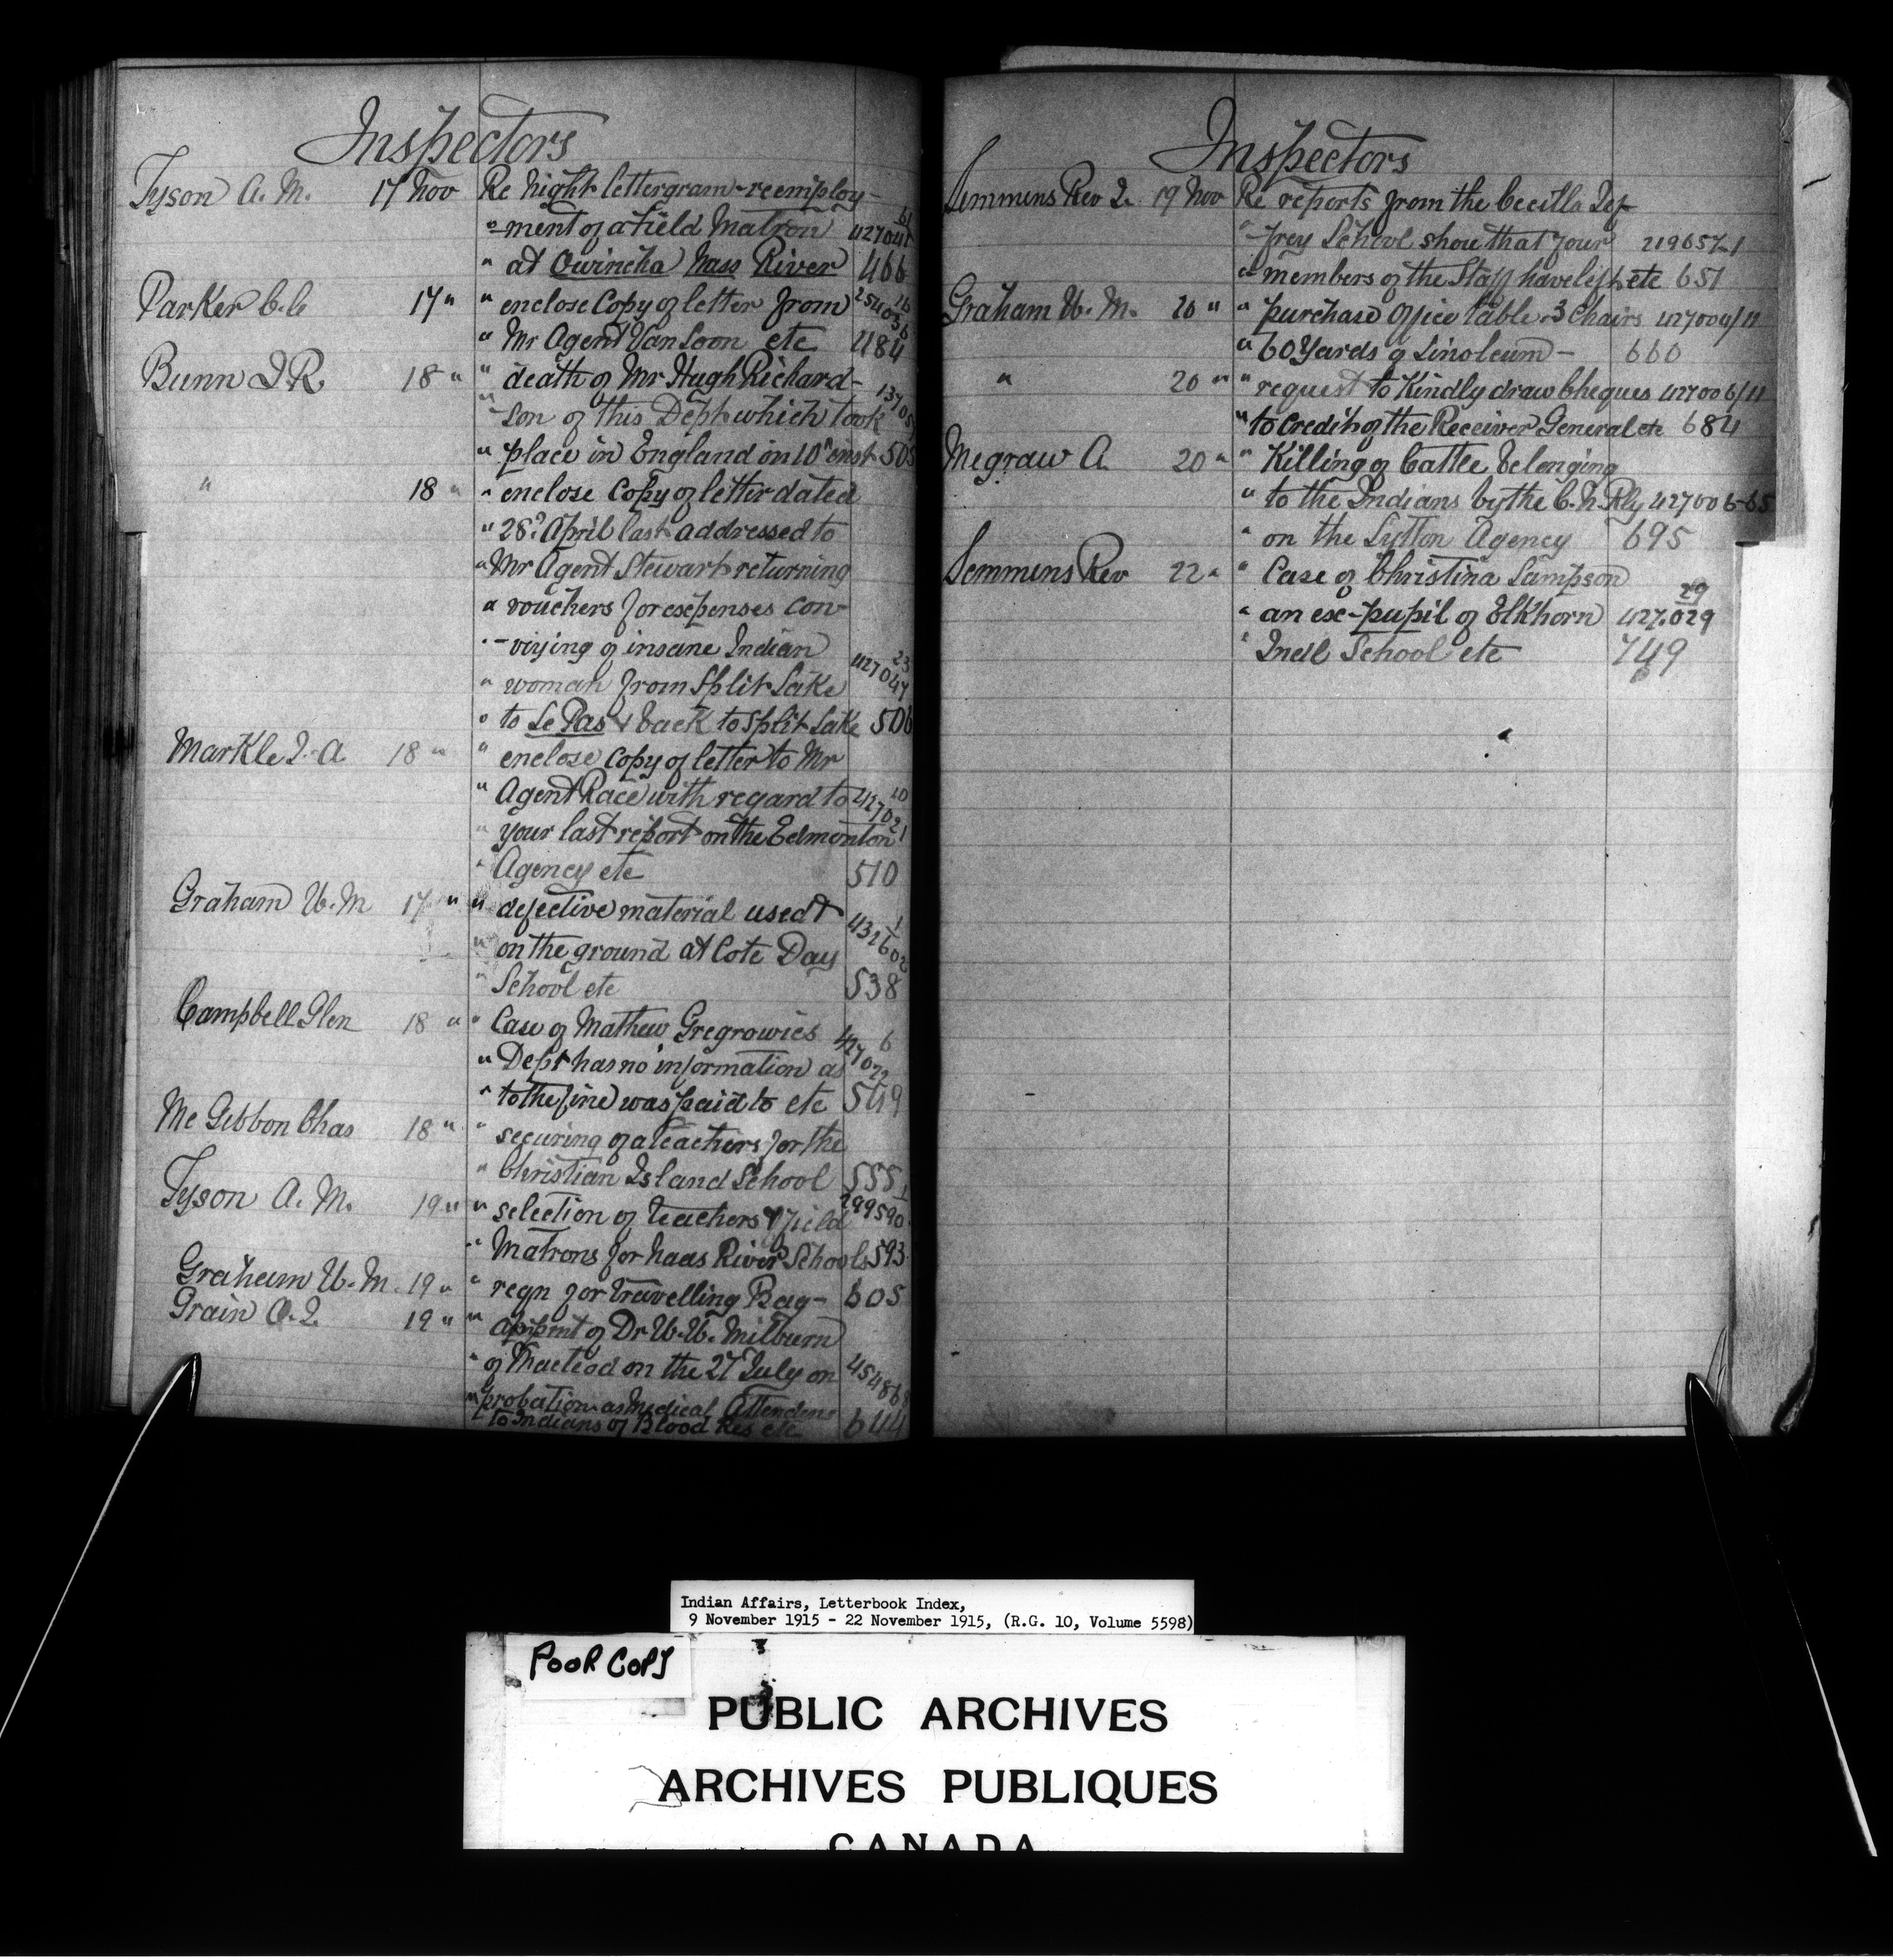 Inspectors
Tyson A. M. 17 Nov Re Night lettergram - reemploy-
" -ment of a Field Matron 427041 61
" at Owincha Nass River 466
Parker C. C 17 " " enclose Copy of letter from 254 16
" Mr Agent Van Loon etc 484
Bunn J R 18 " " death of Mr Hugh Richard-
" -son of this Dept which took 1370
" place in England on 10th inst 505
" 18 " " enclose Copy of letter dated
" 28th April last addressed to
" Mr Agent Stewart returning
" vouchers for expenses con-
" -veying of insane Indian
" woman from Split Lake 427047 23
" to Le Pas & back to Split Lake 506
Markle J. A. 18 " " enclose copy of letter to Mr
" Agent Race with regard to 427021 10
" your last report on the Edmonton
" Agency etc 510
Graham W. M 17 " " defective material used &
" on the ground at Cote Day 431602 1
" School etc 538
Campbell Glen 18 " " Case of Mathew Gregrowies
" Dept has no information as 427022 6
" to the fine was paid to etc 549
Mc Gibbon Chas 18 " " securing of a teachers for the
" Christian Island School 555
Tyson A. M. 19 " " selection of teachers & Field 299590 1
" Matrons for Naas River Schools 593
Graham W. M. 19 " " reqn for travelling Bag - 605
Grain O. I. 19 " " appmt of Dr W. W. Milburn
" of Macleod on the 27 July on 45486
" probation as Medical Attendent
" to Indians of Blood Res etc 644
Inspectors
Semmens Rev J. 19 Nov Re reports from the Cecilla Jef
" -frey School show that four 219657-1
" members of the Staff have left etc 651
Graham W. M. 20 " " purchase Office table & 3 Chairs 427004/11
" 60 Yards of Linoleum - 660
" 20 " " request to Kindly draw Cheques 427006/11
" to Credit of the Receiver General etc 684
Megraw A. 20 " " Killing of Cattle belonging
" to the Indians by the C. N. Rly 427006-65
" on the Lytton Agency 695
Semmens Rev 22 " " Case of Christina Sampson
" an ex-pupil of Elkhorn 427.029 29
" Indl School etc 749
Indian Affairs, Letterbook Index,
9 November 1915 - 22 November 1915, (R.G. 10, Volume 5598)
POOR COPY
PUBLIC ARCHIVES
ARCHIVES PUBLIQUES
CANADA